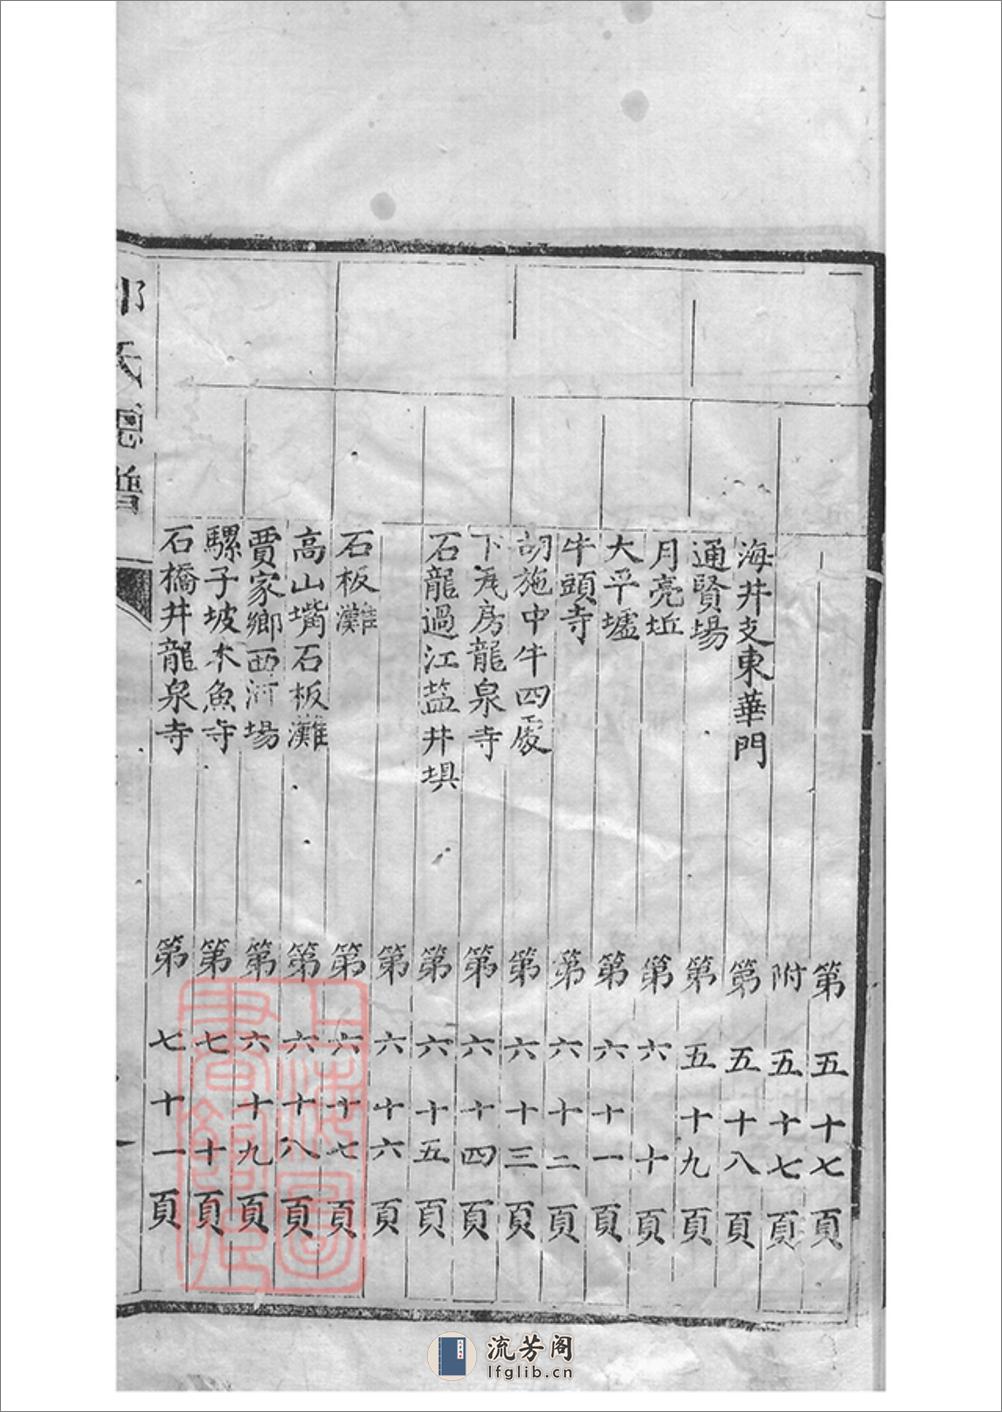 第五十七頁
附五十七頁
海井支東華門 第五十八頁
通賢場 第五十九頁
月亮坵 第六十頁
大平墟 第六十一頁
牛頭寺 第六十二頁
胡施中牛四處 第六十三頁
下瓦房龍泉寺 第六十四頁
石龍過江盐井垻 第六十五頁
第六十六頁
石板灘 第六十七頁
高山嘴石板灘 第六十八頁
賈家鄉西河場 第六十九頁
騾子坡木魚寺 第七十頁
石橋井龍泉寺 第七十一頁
氏總譜
一
上海圖書館藏
流芳阁
lfglib.cn